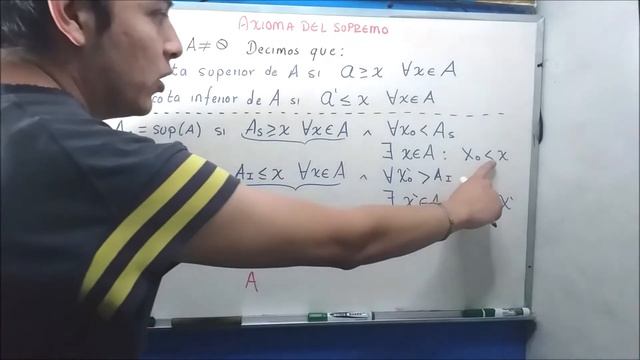 AXIOMA DEL SUPREMO
A ≠ ∅ Decimos que:
superior de A si a ≥ x ∀x∈A
cota inferior de A si a' ≤ x ∀x∈A
= sup(A) si As ≥ x ∀x∈A ∧ ∀x₀ < As
∃ x∈A : x₀ < x
A_I ≤ x ∀x∈A ∧ ∀x₀' > A_I
∃ x'∈A x'
A